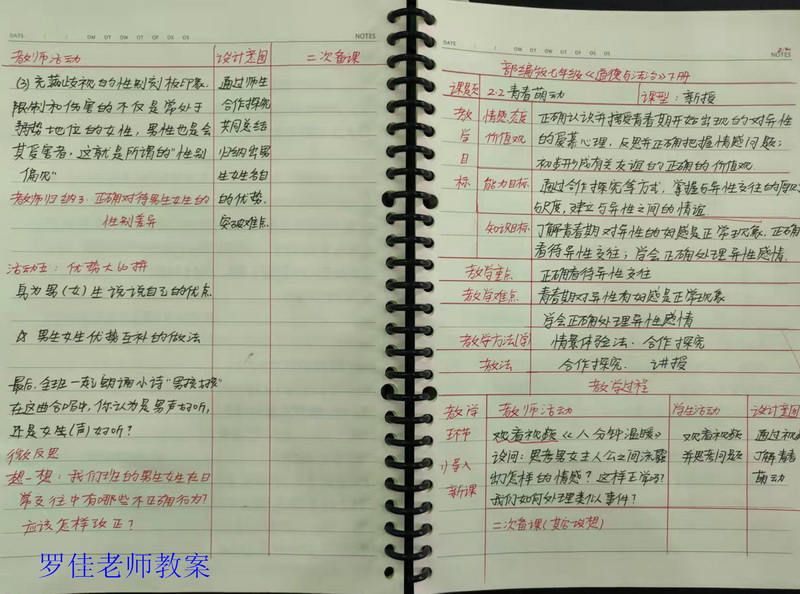 DATE
NOTES
教师活动 设计意图 二次备课
(3)充满歧视的性别刻板印象, 通过师生
限制和伤害的不仅是常处于 合作探究
弱势地位的女性,男性也是会 共同总结
其受害者,这就是所谓的"性别 归纳出男
偏见" 生女生各自
教师归纳3:正确对待男生女生的 的优势.
性别差异 突破难点.
活动五:优势大比拼
身为男(女)生说说自己的优点
男生女生优势互补的做法
最后,全班一起朗诵小诗"男孩女孩"
在这曲合唱中,你认为是男声好听,
还是女生(声)好听?
微反思
想一想:我们班的男生女生在日
常交往中有哪些不正确行为?
应该怎样改正?
罗佳老师教案
DATE
NOTES
部编版七年级《道德与法治》下册
课题 2.2青春萌动 课型:新授
教 情感态度 正确认识并接受青春期开始出现的对异性
学 价值观 的爱慕心理,反思并正确把握情感问题;
目 初步形成有关友谊的正确的价值观
标 能力目标 通过合作探究等方式,掌握与异性交往的原则
与尺度,建立与异性之间的情谊.
知识目标 了解青春期对异性的好感是正常现象.正确
看待异性交往;学会正确处理异性感情.
教学重点 正确看待异性交往
教学难点 青春期对异性有好感是正常现象
学会正确处理异性感情
教学方法(学) 情景体验法.合作探究
教法 合作探究. 讲授
教学过程
教学 教师活动 学生活动 设计意图
环节 观看视频《八分钟温暖》 观看视频 通过视
导入 设问:思考男女主人公之间流露 并思考问题 了解青春
新课 出怎样的情感?这样正常吗? 萌动
我们如何处理类似事件?
二次备课(其它设想)